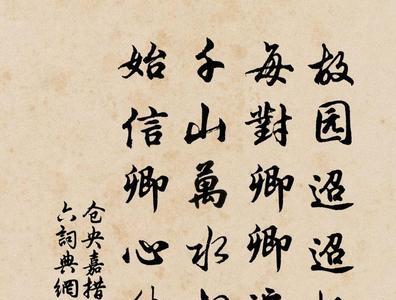 故园迢迢
每對卿卿
千山萬水
始信卿心
仓央嘉措
六詞典網